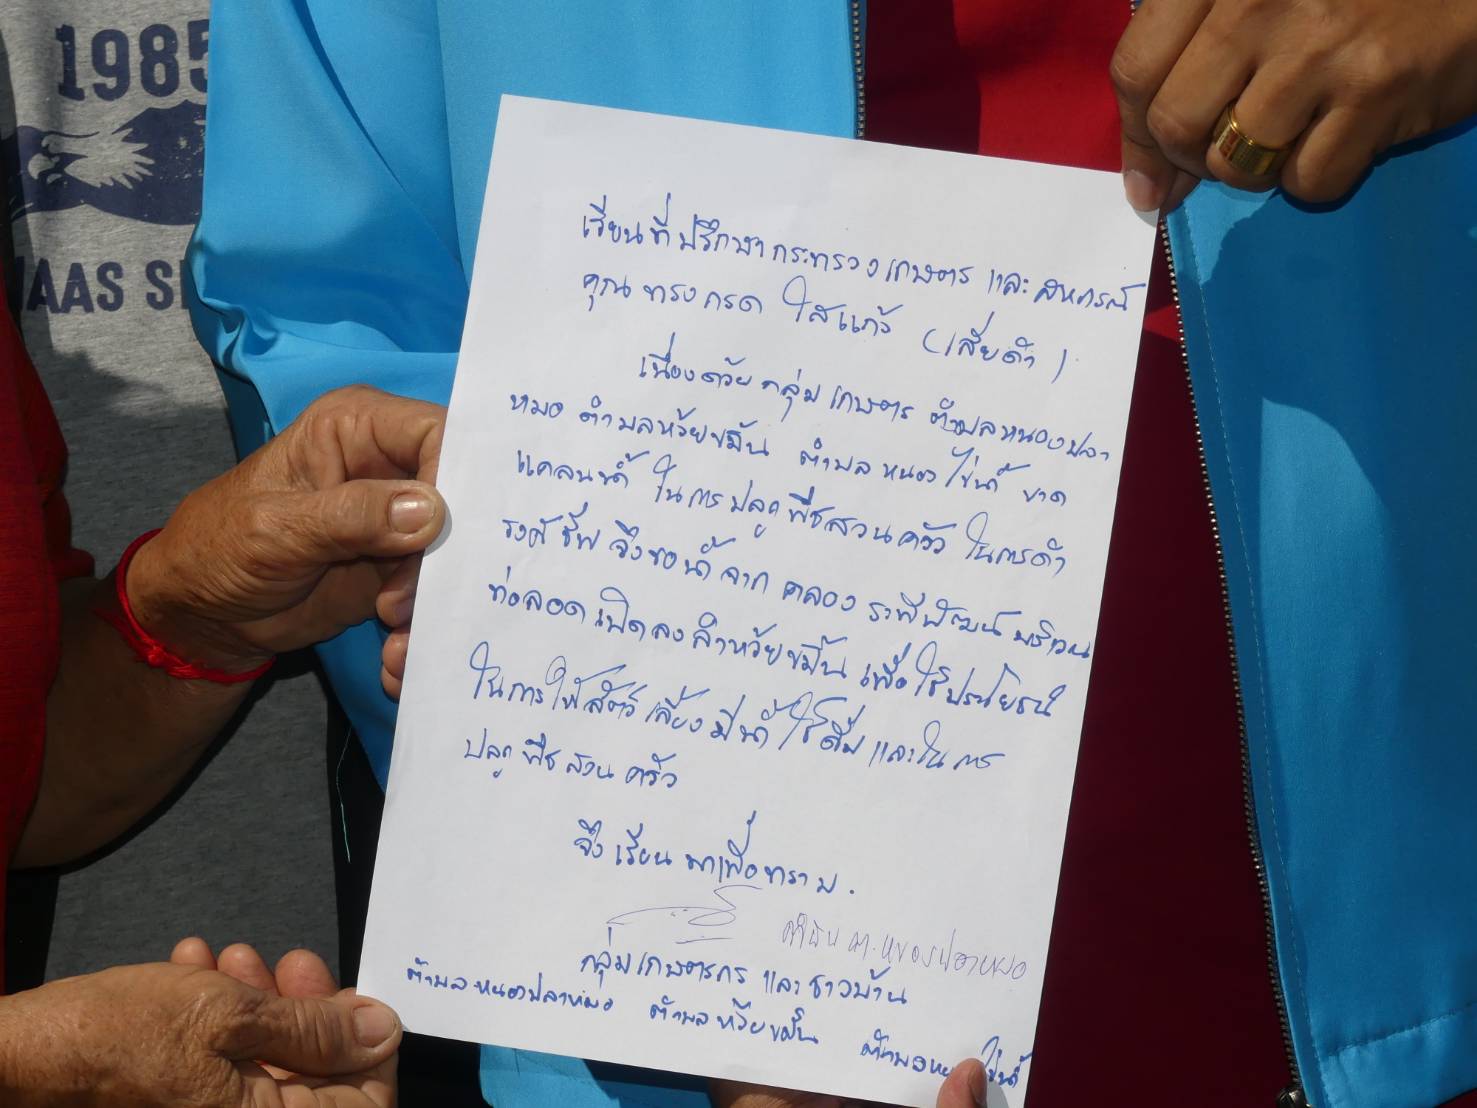 1985
AAS S
เรียนที่ปรึกษากระทรวงเกษตร และสหกรณ์
คุณทรงกรด ใสแก้ว (เสี่ยดำ)
เนื่องด้วยกลุ่มเกษตร ตำบลหนองปลา
หมอ ตำบลห้วยขมิ้น ตำบลหนองไข่น้ำ ขาด
แคลนน้ำ ในการปลูกพืชสวนครัว ในการดำ
รงค์ชีพ จึงขอน้ำจากคลองระพีพัฒน์ บริเวณ
ท่อลอดเปิดลงลำห้วยขมิ้น เพื่อใช้ประโยชน์
ในการให้สัตว์เลี้ยงมีน้ำใช้ดื่ม และในการ
ปลูกพืชสวนครัว
จึงเรียนมาเพื่อทราบ.
กำนัน ต.หนองปลาหมอ
กลุ่มเกษตรกร และชาวบ้าน
ตำบลหนองปลาหมอ ตำบลห้วยขมิ้น ตำบลห ไข่น้ำ